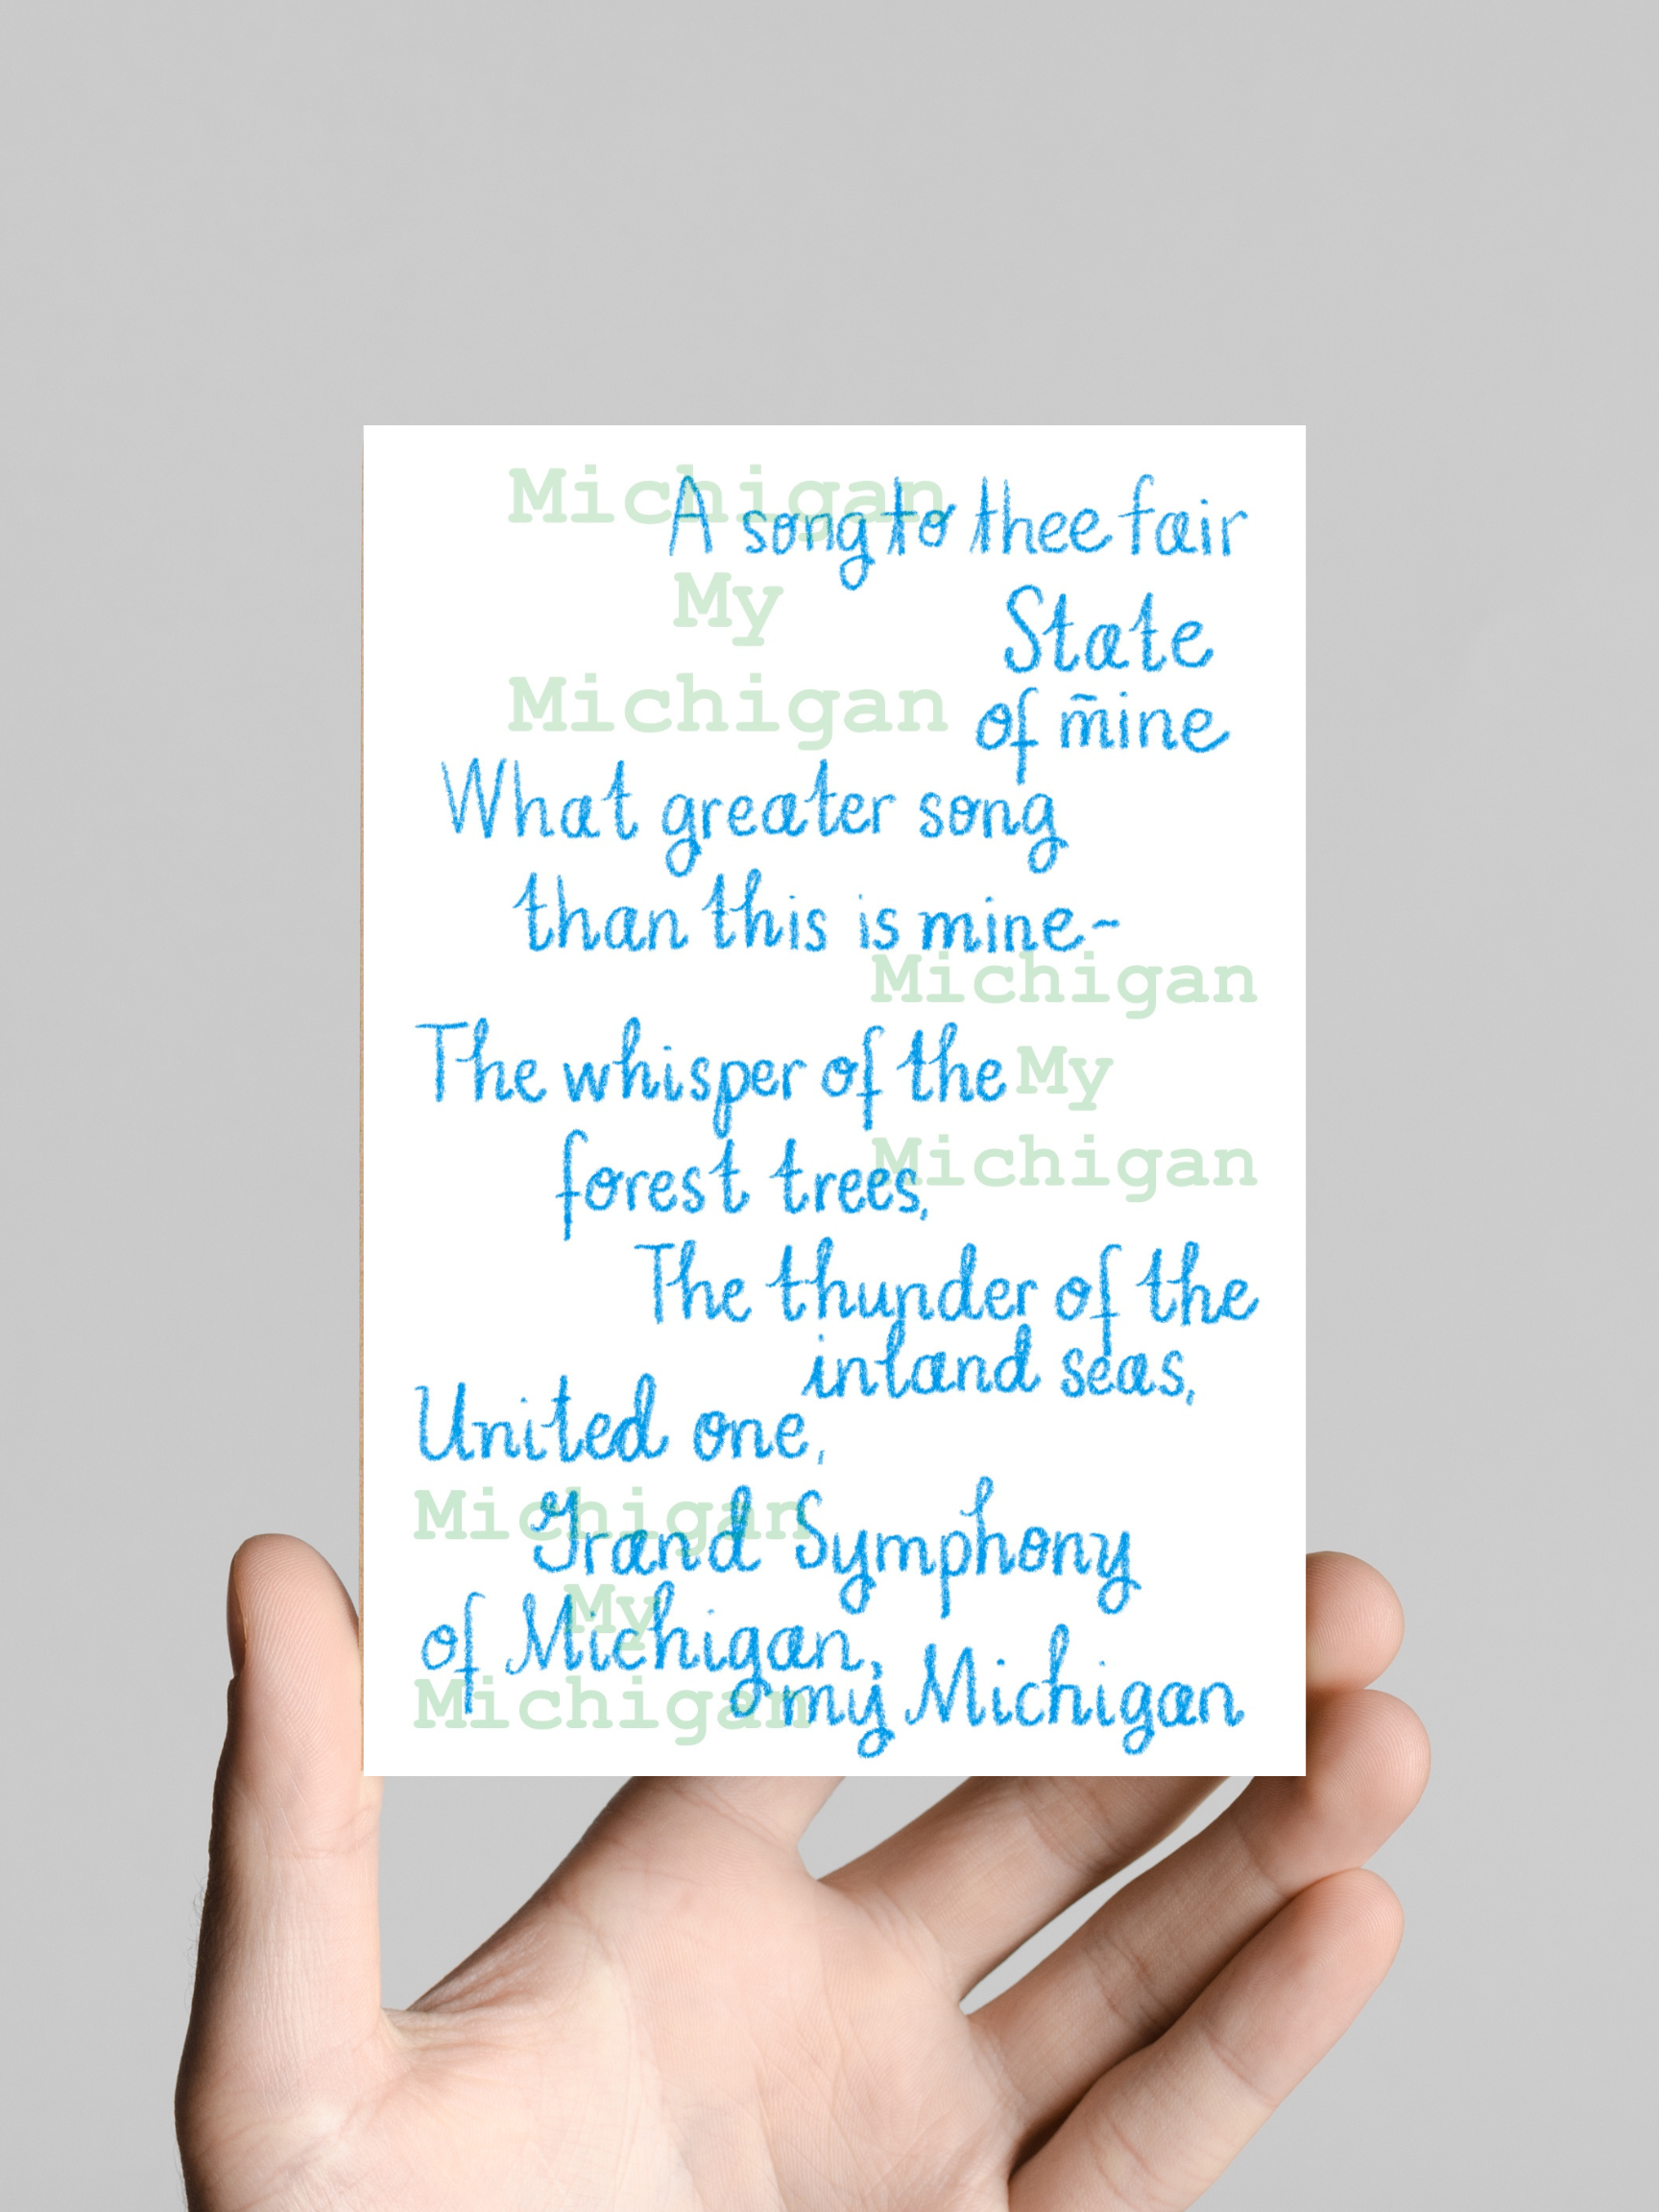 Michigan
A song to thee fair
My
State
Michigan
of mine
What greater song
than this is mine-
Michigan
The whisper of the
My
forest trees,
Michigan
The thunder of the
inland seas,
United one,
Michigan
Grand Symphony
My
of Michigan,
Michigan
my Michigan